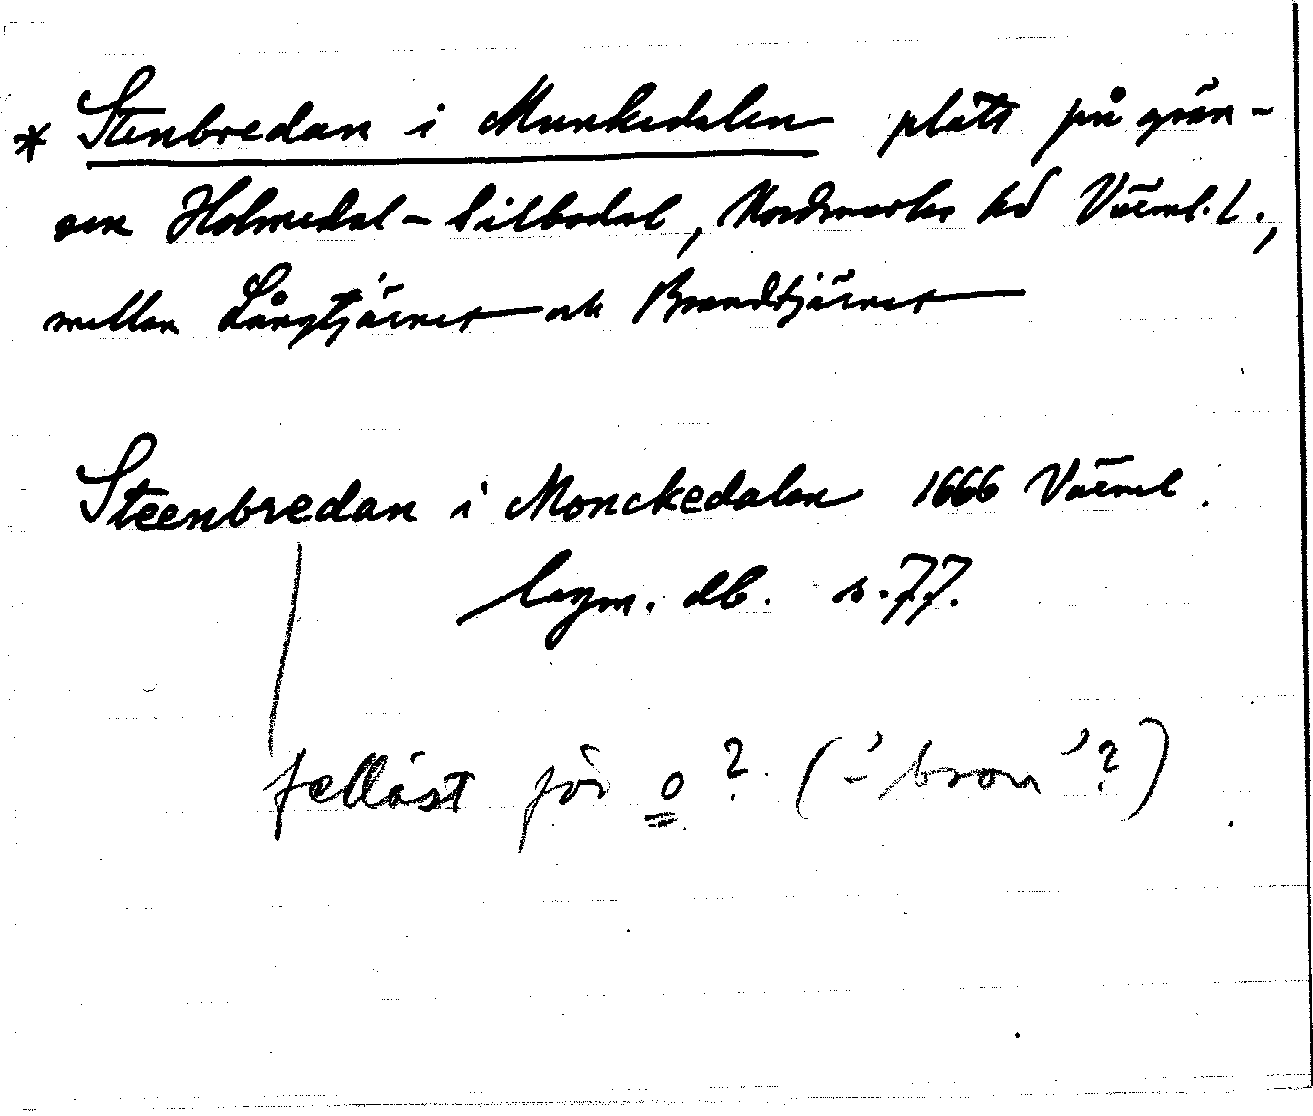 * Stenbredan i Munkedalen plats på grän-
sen Holmedal - Silbodal, Nordmarks hd Värml. l.,
mellan Långtjärnet och Brandtjärnet
Steenbredan i Monckedalen 1666 Värml.
lagm. db. s. 77.
felläst för o? (-'bron'?)